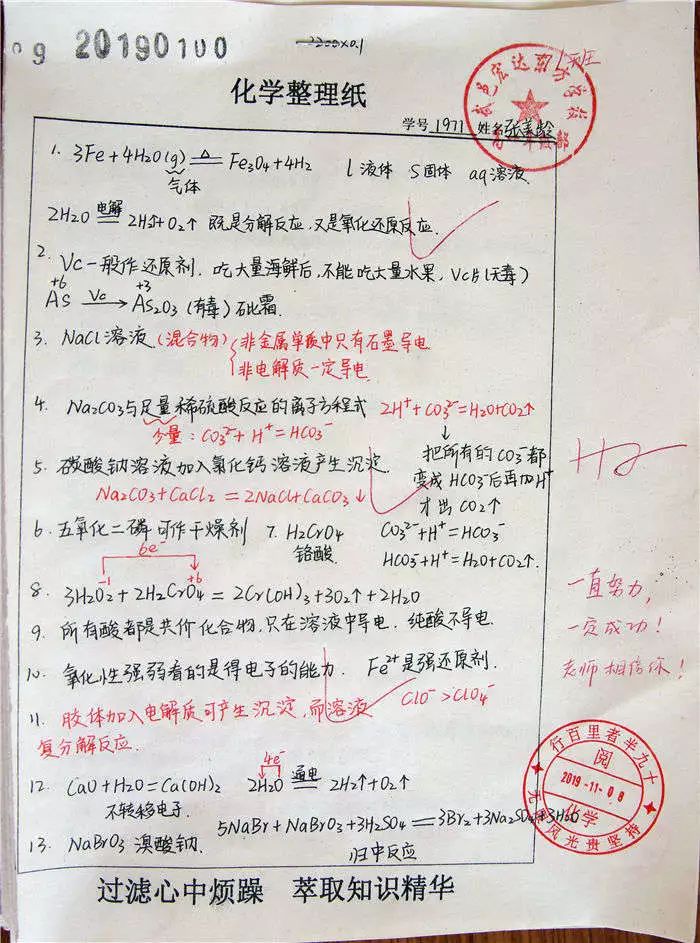 09 20190100
化学整理纸
学号 1971 姓名 张美龄
1班
1. 3Fe+4H2O(g) ≜ Fe3O4+4H2 l 液体 S固体 aq溶液
气体
2H2O 电解== 2H2↑+O2↑ 既是分解反应,又是氧化还原反应.
2. Vc一般作还原剂. 吃大量海鲜后,不能吃大量水果, Vc片(无毒)
+6 +3
As Vc→ As2O3 (有毒) 砒霜.
3. NaCl溶液 (混合物) { 非金属单质中只有石墨导电
非电解质一定导电
4. Na2CO3与足量稀硫酸反应的离子方程式 2H⁺+CO3²⁻=H2O+CO2↑
少量: CO3²⁻+H⁺=HCO3⁻
↓
把所有的CO3²⁻都
5. 碳酸钠溶液加入氯化钙溶液产生沉淀. 变成HCO3⁻后再加H⁺
Na2CO3+CaCl2=2NaCl+CaCO3↓ 才出CO2↑
6. 五氧化二磷可作干燥剂 7. H2CrO4 CO3²⁻+H⁺=HCO3⁻
铬酸. HCO3⁻+H⁺=H2O+CO2↑.
6e⁻
-1 +6
8. 3H2O2+2H2CrO4=2Cr(OH)3+3O2↑+2H2O
9. 所有酸都是共价化合物,只在溶液中导电. 纯酸不导电.
10. 氧化性强弱看的是得电子的能力. Fe²⁺是强还原剂.
ClO⁻>ClO4⁻
11. 胶体加入电解质可产生沉淀,而溶液
复分解反应.
4e⁻
12. CaO+H2O=Ca(OH)2 2H2O 通电== 2H2↑+O2↑
不转移电子.
5NaBr+NaBrO3+3H2SO4==3Br2+3Na2SO4+3H2O
13. NaBrO3 溴酸钠. 归中反应
一直努力,
一定成功!
老师相信你!
行百里者半九十
阅
2019-11-08
化学
无限风光贵坚持
过滤心中烦躁 萃取知识精华